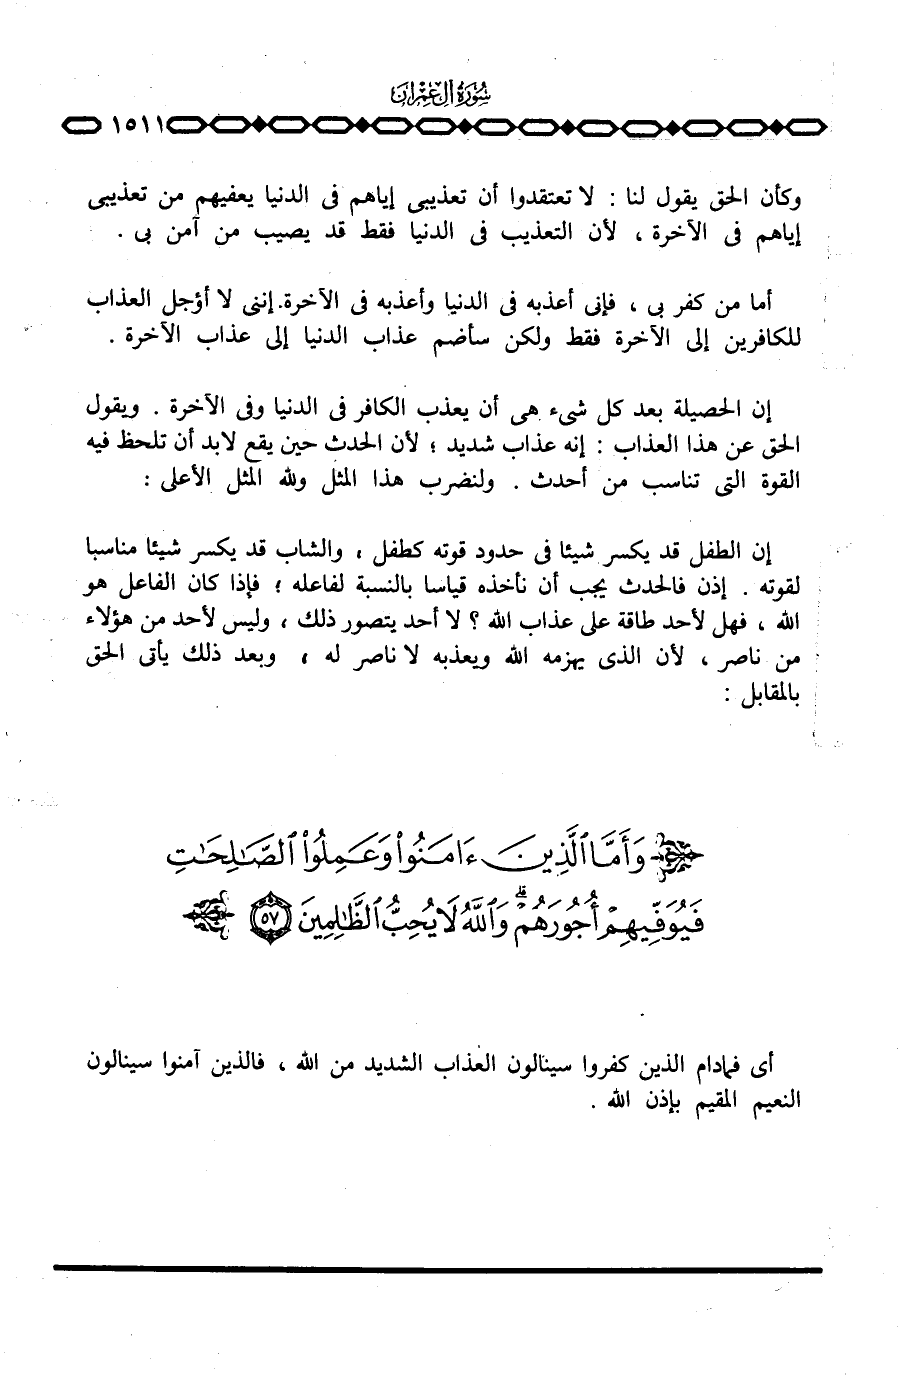 سُورَةُ آلِ عِمْرَانَ
١٥١١
وكأن الحق يقول لنا : لا تعتقدوا أن تعذيبى إياهم فى الدنيا يعفيهم من تعذيبى
إياهم فى الآخرة ، لأن التعذيب فى الدنيا فقط قد يصيب من آمن بى .
أما من كفر بى ، فإنى أعذبه فى الدنيا وأعذبه فى الآخرة. إننى لا أؤجل العذاب
للكافرين إلى الآخرة فقط ولكن سأضم عذاب الدنيا إلى عذاب الآخرة .
إن الحصيلة بعد كل شىء هى أن يعذب الكافر فى الدنيا وفى الآخرة . ويقول
الحق عن هذا العذاب : إنه عذاب شديد ؛ لأن الحدث حين يقع لابد أن تلحظ فيه
القوة التى تناسب من أحدث . ولنضرب هذا المثل ولله المثل الأعلى :
إن الطفل قد يكسر شيئا فى حدود قوته كطفل ، والشاب قد يكسر شيئا مناسبا
لقوته . إذن فالحدث يجب أن نأخذه قياسا بالنسبة لفاعله ؛ فإذا كان الفاعل هو
الله ، فهل لأحد طاقة على عذاب الله ؟ لا أحد يتصور ذلك ، وليس لأحد من هؤلاء
من ناصر ، لأن الذى يهزمه الله ويعذبه لا ناصر له ، وبعد ذلك يأتى الحق
بالمقابل :
وَأَمَّا ٱلَّذِينَ ءَامَنُوا۟ وَعَمِلُوا۟ ٱلصَّـٰلِحَـٰتِ
فَيُوَفِّيهِمْ أُجُورَهُمْ ۗ وَٱللَّهُ لَا يُحِبُّ ٱلظَّـٰلِمِينَ ٥٧
أى فمادام الذين كفروا سينالون العذاب الشديد من الله ، فالذين آمنوا سينالون
النعيم المقيم بإذن الله .